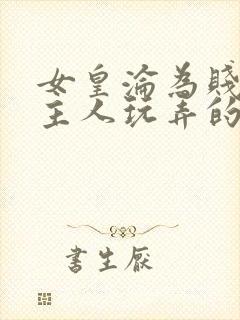 女皇淪為賤
主人玩弄的
書生厭